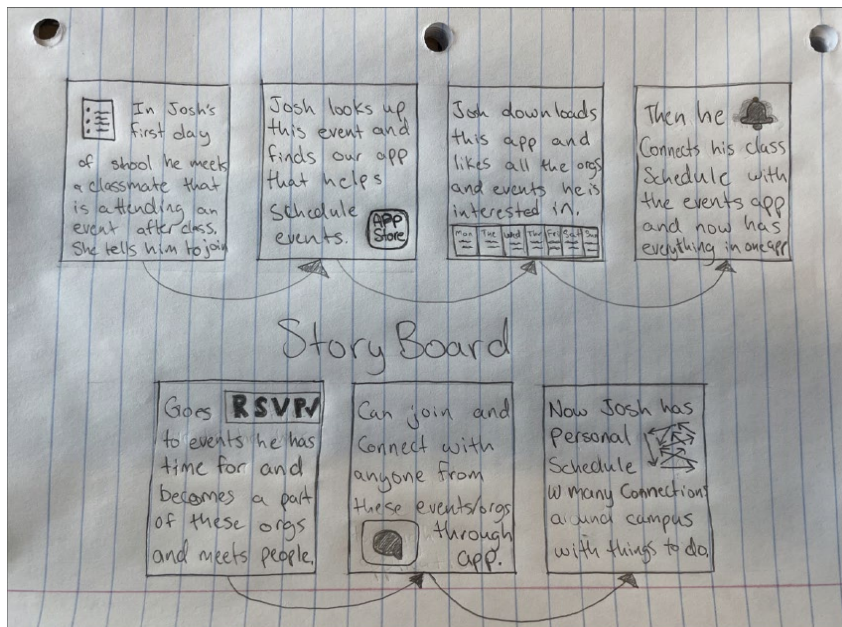 In Josh's
first day
of shool he meets
a classmate that
is attending an
event after class.
She tells him to join
Josh looks up
this event and
finds our app
that helps
schedule
events.
APP
Store
Josh downloads
this app and
likes all the orgs
and events he is
interested in.
Mon Tue Wed Thu Fri Sat Sun
Then he
Connects his class
Schedule with
the events app
and now has
everything in one app
Story Board
Goes RSVP
to events he has
time for and
becomes a part
of these orgs
and meets people.
Can join and
Connect with
anyone from
these events/orgs
through
app.
Now Josh has
Personal
Schedule
w many Connections
around campus
with things to do.